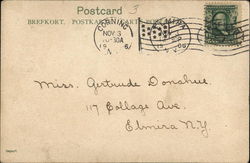 Postcard 3
BREFKORT. POSTKARTE
CORNING
NOV 3
1906
Miss. Gertrude Donahue.
117 College Ave.
Elmira N.Y.